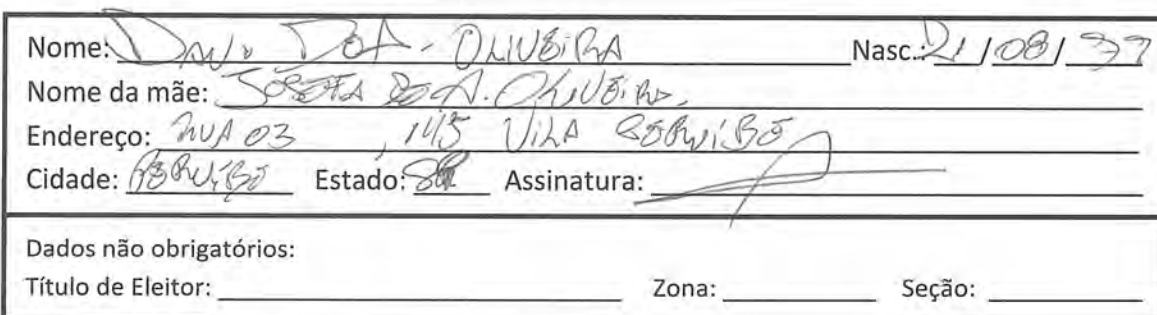 Nome: DO A. OLIVEIRA Nasc.: 21/08/77
Nome da mãe: JOSEFA DO A. OLIVEIRA
Endereço: RUA 03, 145 VILA PERUÍBE
Cidade: PERUÍBE Estado: SP Assinatura:
Dados não obrigatórios:
Título de Eleitor: Zona: Seção: